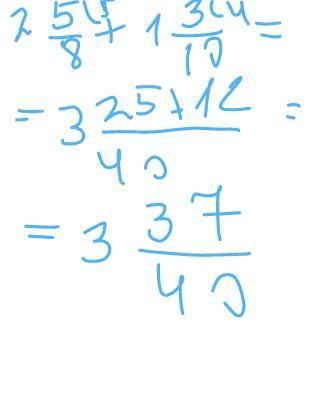 2 5(5/8 + 1 3(4/10 =
= 3 25+12/40 =
= 3 37/40